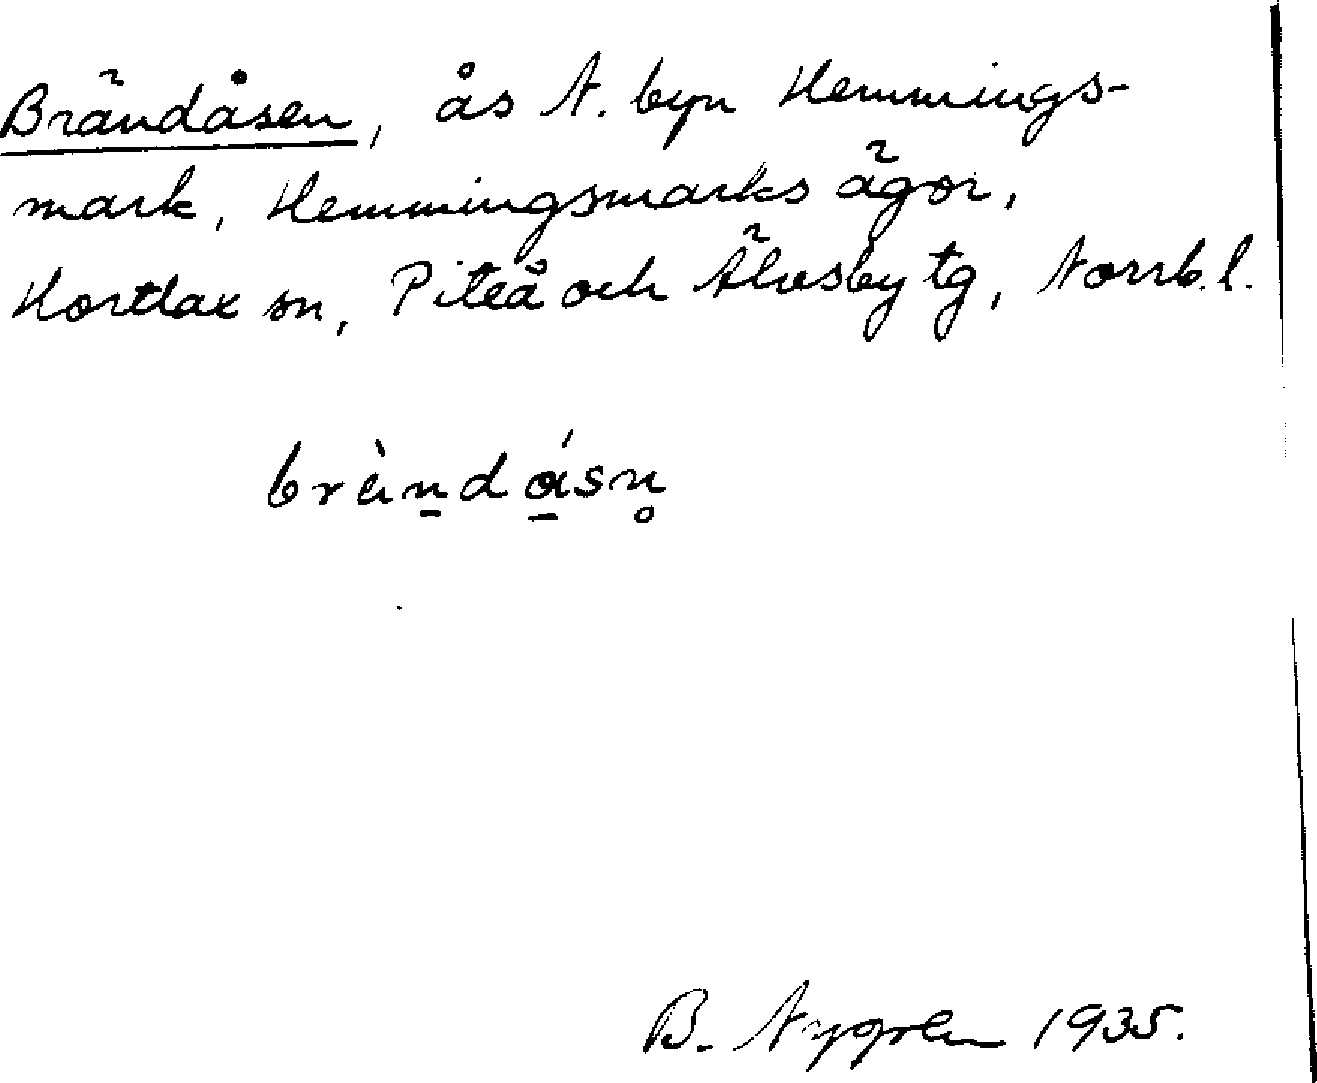 Brändåsen, ås N. byn Hemmings-
mark, Hemmingsmarks ägor,
Hortlax sn, Piteå och Älvsby tg, Norrb.l.
brä̀nd ásn̥
B. Nygren 1935.